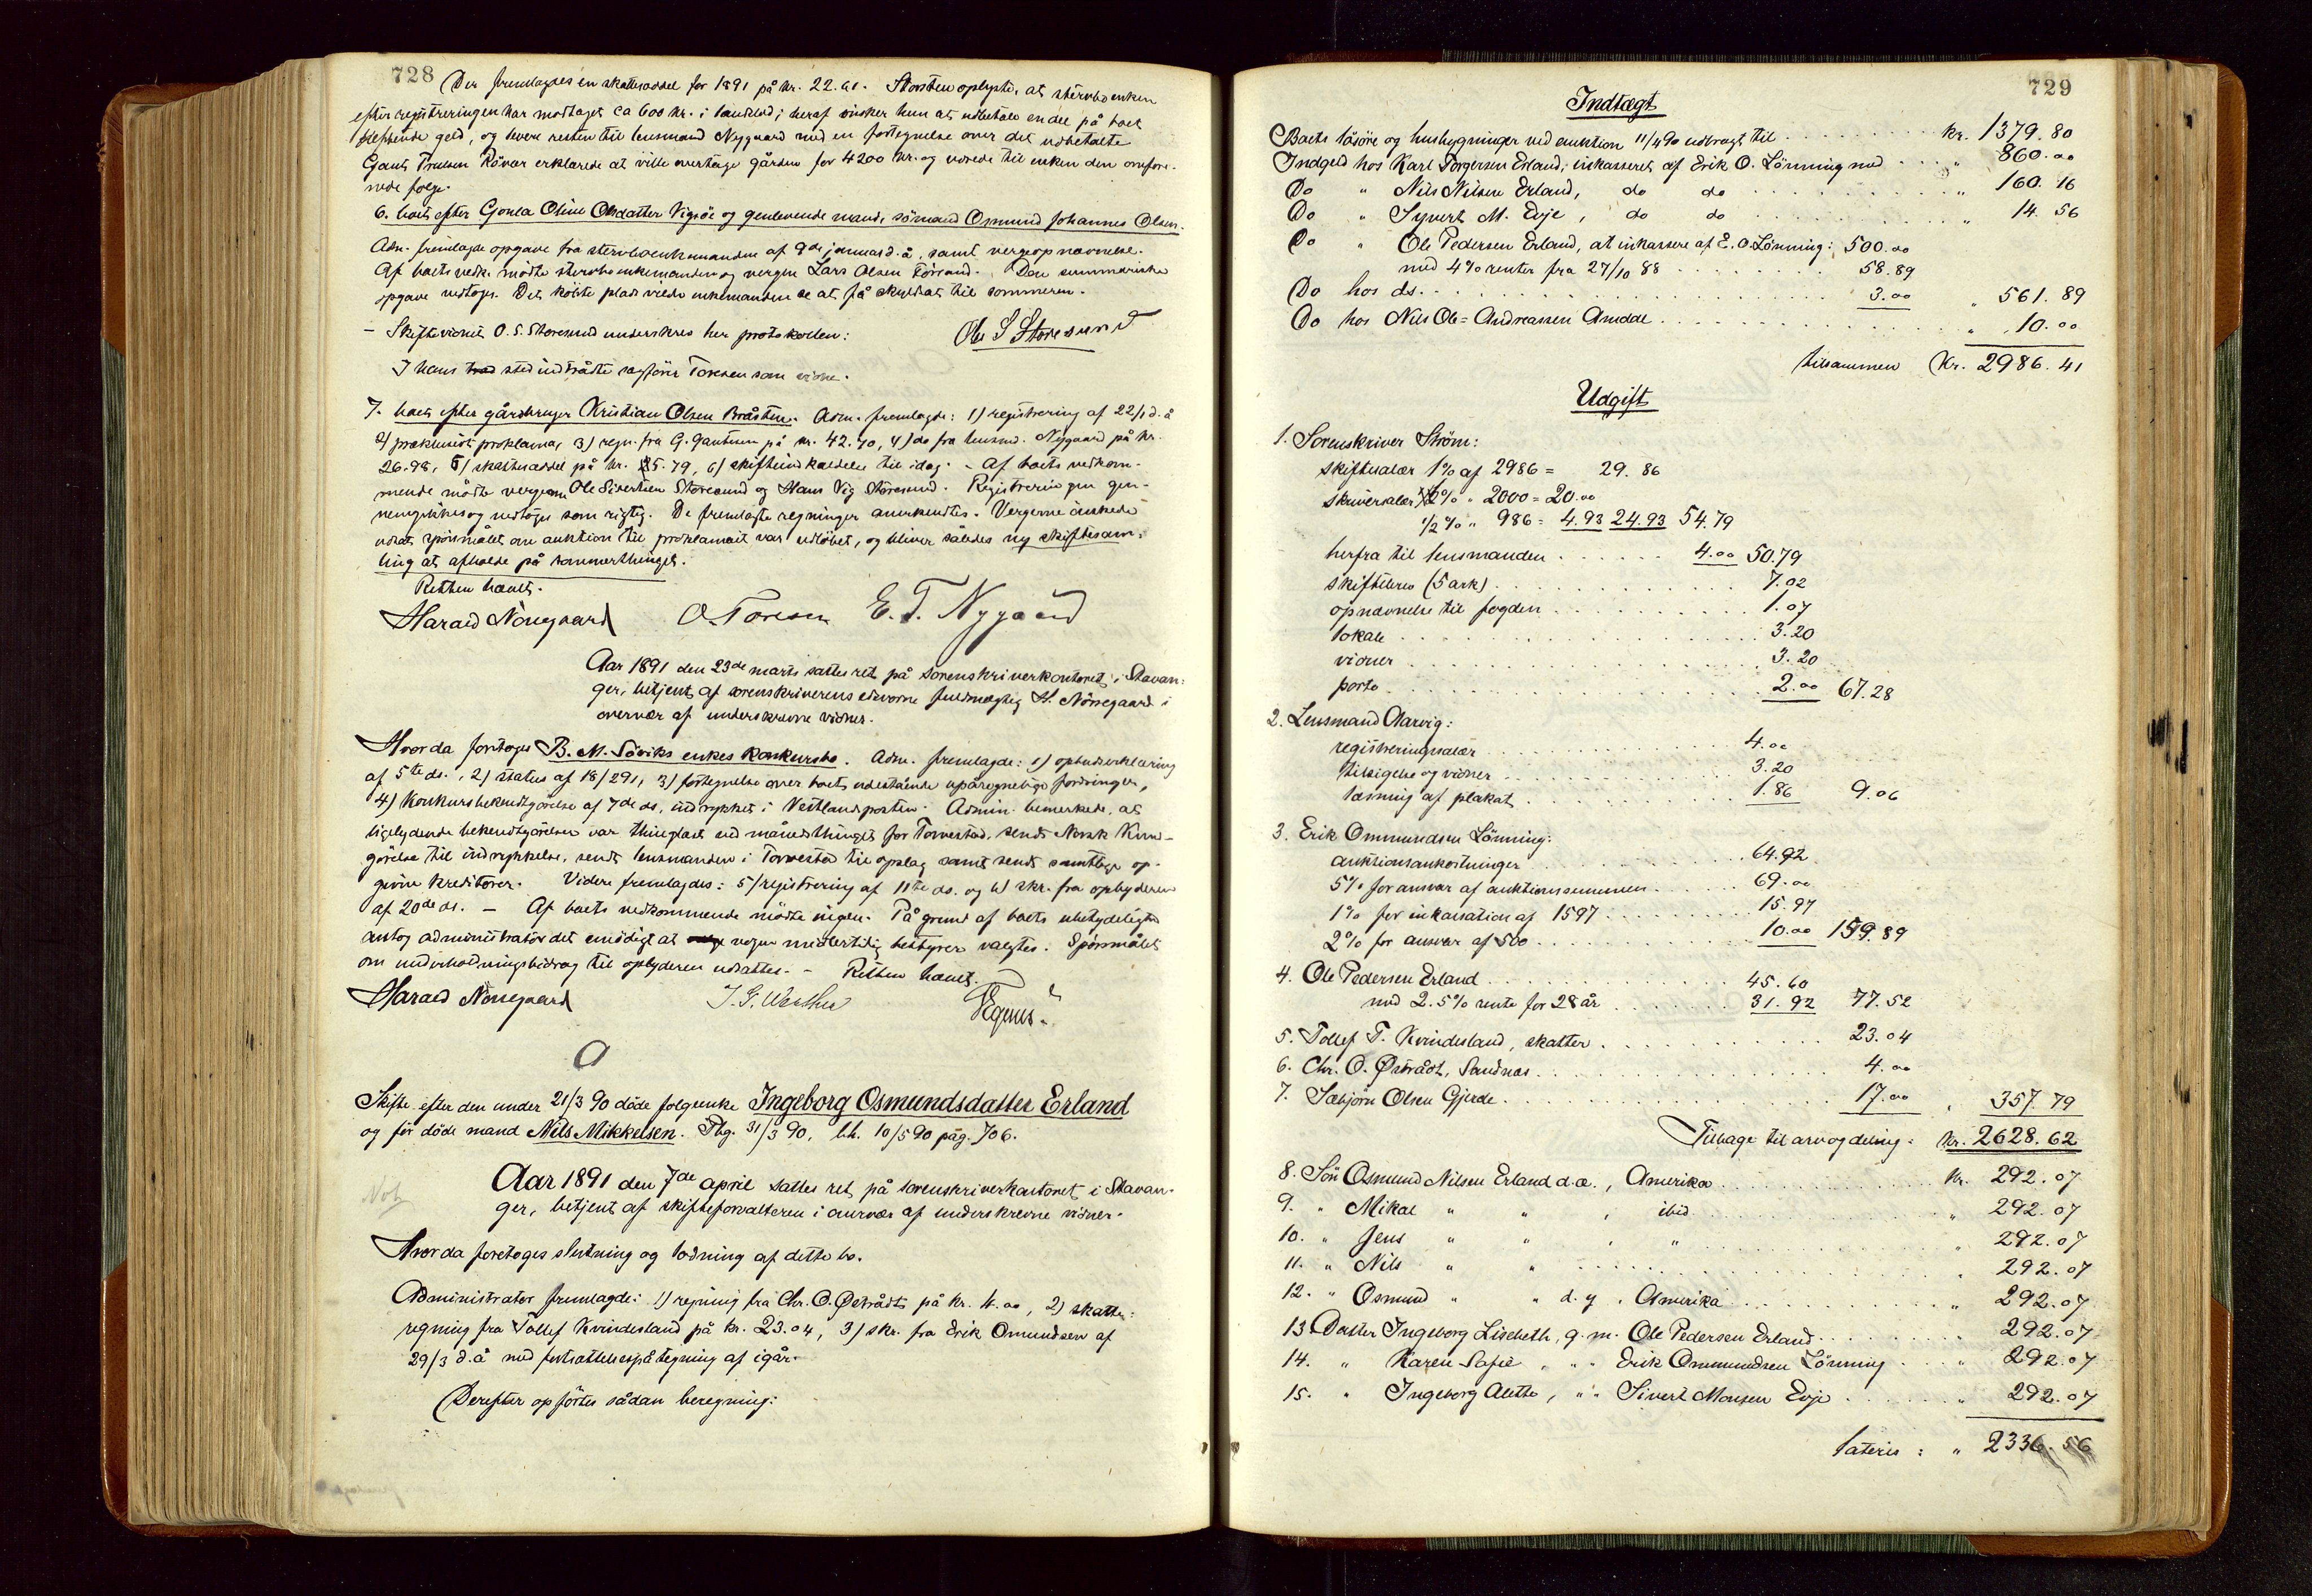 728
Der fremlagdes en skatteseddel for 1891 på kr. 22.61. Storsten oplyste, at stervboenken
efter registreringen har modtaget ca 600 kr. i landslod; heraf ønsker hun at udbetale endel på boet
heftende gjeld, og levere resten til lensmand Nygaard med en fortegnelse over det udbetalte
Gaut Trulsen Røvær erklærede at ville overtage gården for 4200 kr. og udrede til enken den omføre-
nede følge.
6. boet efter Gonla Oline Olsdatter Vigsøe og gjenlevende mand, sømand Osmund Johannes Olsen.
Adm. fremlagde opgave fra stervboenkemanden af 9de januar d. å, samt vergeopnævnelse.
Af boets vedk. mødte stervboenkemanden og vergen Lars Olsen Førsand. Den summariske
opgave vedtoges. Det købte plads vilde enkemanden se at få skyldsat til sommeren.
– Skiftevidnet O. S. Storesund underskrev her protokollen: Ole S Storesund
I hans sted indtrådte sagfører Toresen som vidne.
7. boet efter gårdbruger Kristian Olsen Bråsten. Adm. fremlagde: 1) registrering af 22/1 d. å
2) præklusivt proklama, 3) regn. fra G. Gautesen på kr. 42.70, 4) do fra lensmd. Nygaard på kr.
26.98, 5) skatteseddel på kr. 5.79, 6) skifteindkaldelse til idag. – Af boets vedkom-
mende mødte vergerne Ole Sivertsen Storesund og Hans Vig Storesund. Registreringen gjen-
nemgikkes og vedtoges som rigtig. De fremlagte regninger anerkendtes. Vergerne ønskede
udsat spørsmålet om auktion til proklamaet var udløbet, og bliver således ny skiftesam-
ling at afholde på sommerthinget.
Retten hævet.
Harald Nörregaard O. Toresen E. T. Nygaard
Aar 1891 den 23de marts sattes ret på sorenskriverkontoret i Stavan-
ger, betjent af sorenskriverens edsvorne fuldmægtig H. Nörregaard i
overvær af underskrevne vidner.
Hvorda foretoges B. M. Söviks enkes konkursbo. Adm. fremlagde: 1) opbudserklæring
af 5te ds., 2) status af 18/2 91, 3) fortegnelse over boets udestående upåregnelige fordringer,
4) Konkursbekendtgörelse af 7de ds, indrykket i Vestlandsposten. Admin. bemerkede, at
ligelydende bekendtgörelser var thinglæst ved månedsthinget for Torvestad, sendt Norsk Kund-
görelse til indrykkelse, sendt lensmanden i Torvestad til opslag samt sendt samtlige op-
givne kreditorer. Videre fremlagdes: 5) registrering af 11te ds. og 6) skr. fra opbyderen
af 20de ds. – Af boets vedkommende mödte ingen. På grund af boets ubetydelighed
antog administrator det unödigt at nogen midlertidig bestyrer valgtes. Spörsmålet
om underholdningsbidrag til opbyderen udsattes. – Retten hævet.
Harald Nörregaard J. G. Westhus
Skifte efter den under 21/3 90 döde folgeenke Ingeborg Osmundsdatter Erland
og för döde mand Nils Mikkelsen. Thg. 31/3 90, bh. 10/5 90 pag. 706.
Aar 1891 den 7de april sattes ret på sorenskriverkontoret i Stavan-
Not
ger, betjent af skifteforvalteren i overvær af underskrevne vidner.
Hvorda foretoges slutning og lodning af dette bo.
Administrator fremlagde: 1) regning fra Chr. O. Østrådt på kr. 4.00, 2) skatte-
regning fra Tollef Kvindesland på kr. 23.04, 3) skr. fra Erik Omundsen af
29/3 d. å med fortsættelsespåtegning af igår.
Derefter opförtes sådan beregning:
729
Indtægt
Boets lösöre og husbygninger ved auktion 11/4 90 udbragt til kr. 1379.80
Indgjeld hos Karl Torgersen Erland, inkasseret af Erik O. Lönning med " 860.00
Do " Nils Nilsen Erland, do do " 160.16
Do " Syvert M. Evje, do do " 14.56
Do " Ole Pedersen Erland, at inkassere af E. O. Lönning: 500.00
med 4% renter fra 27/10 88 58.89
Do hos ds. 3.00 " 561.89
Do hos Nils Ole-Andreassen Amdal " 10.00
tilsammen Kr. 2986.41
Udgift
1. Sorenskriver Ström:
skiftesalær 1% af 2986 = 29.86
skriversalær % " 2000 = 20.00
1/2 % " 986 = 4.93 24.93 54.79
herfra til lensmanden 4.00 50.79
skiftebrev (5 ark) 7.02
opnævnelse til fogden 1.07
lokale 3.20
vidner 3.20
porto 2.00 67.28
2. Lensmand Aarvig:
registreringssalær 4.00
tilsigelse og vidner 3.20
læsning af plakat 1.86 9.06
3. Erik Ommundsen Lönning:
auktionsomkostninger 64.92
5% for ansvar af auktionssummen 69.00
1% for inkassation af 1597 15.97
2% for ansvar af 500 10.00 159.89
4. Ole Pedersen Erland 45.60
med 2.5% rente for 28 år 31.92 77.52
5. Tollef T. Kvindesland, skatter 23.04
6. Chr. O. Østrådt, Sandnæs 4.00
7. Sæbjörn Olsen Gjerde 17.00 " 357.79
Tilbage til arv og deling: Kr. 2628.62
8. Sön Osmund Nilsen Erland d. æ., Amerika Kr. 292.07
9. " Mikal " " , ibid " 292.07
10. " Jens " " , " " 292.07
11. " Nils " " " 292.07
12. " Osmund " " d. y., Amerika " 292.07
13. Datter Ingeborg Lisebeth, g. m. Ole Pedersen Erland 292.07
14. " Karen Sofie " " " Erik Ommundsen Lönning " 292.07
15. " Ingeborg Alette, " " Sivert Monsen Evje " 292.07
lateris: " 2336.56